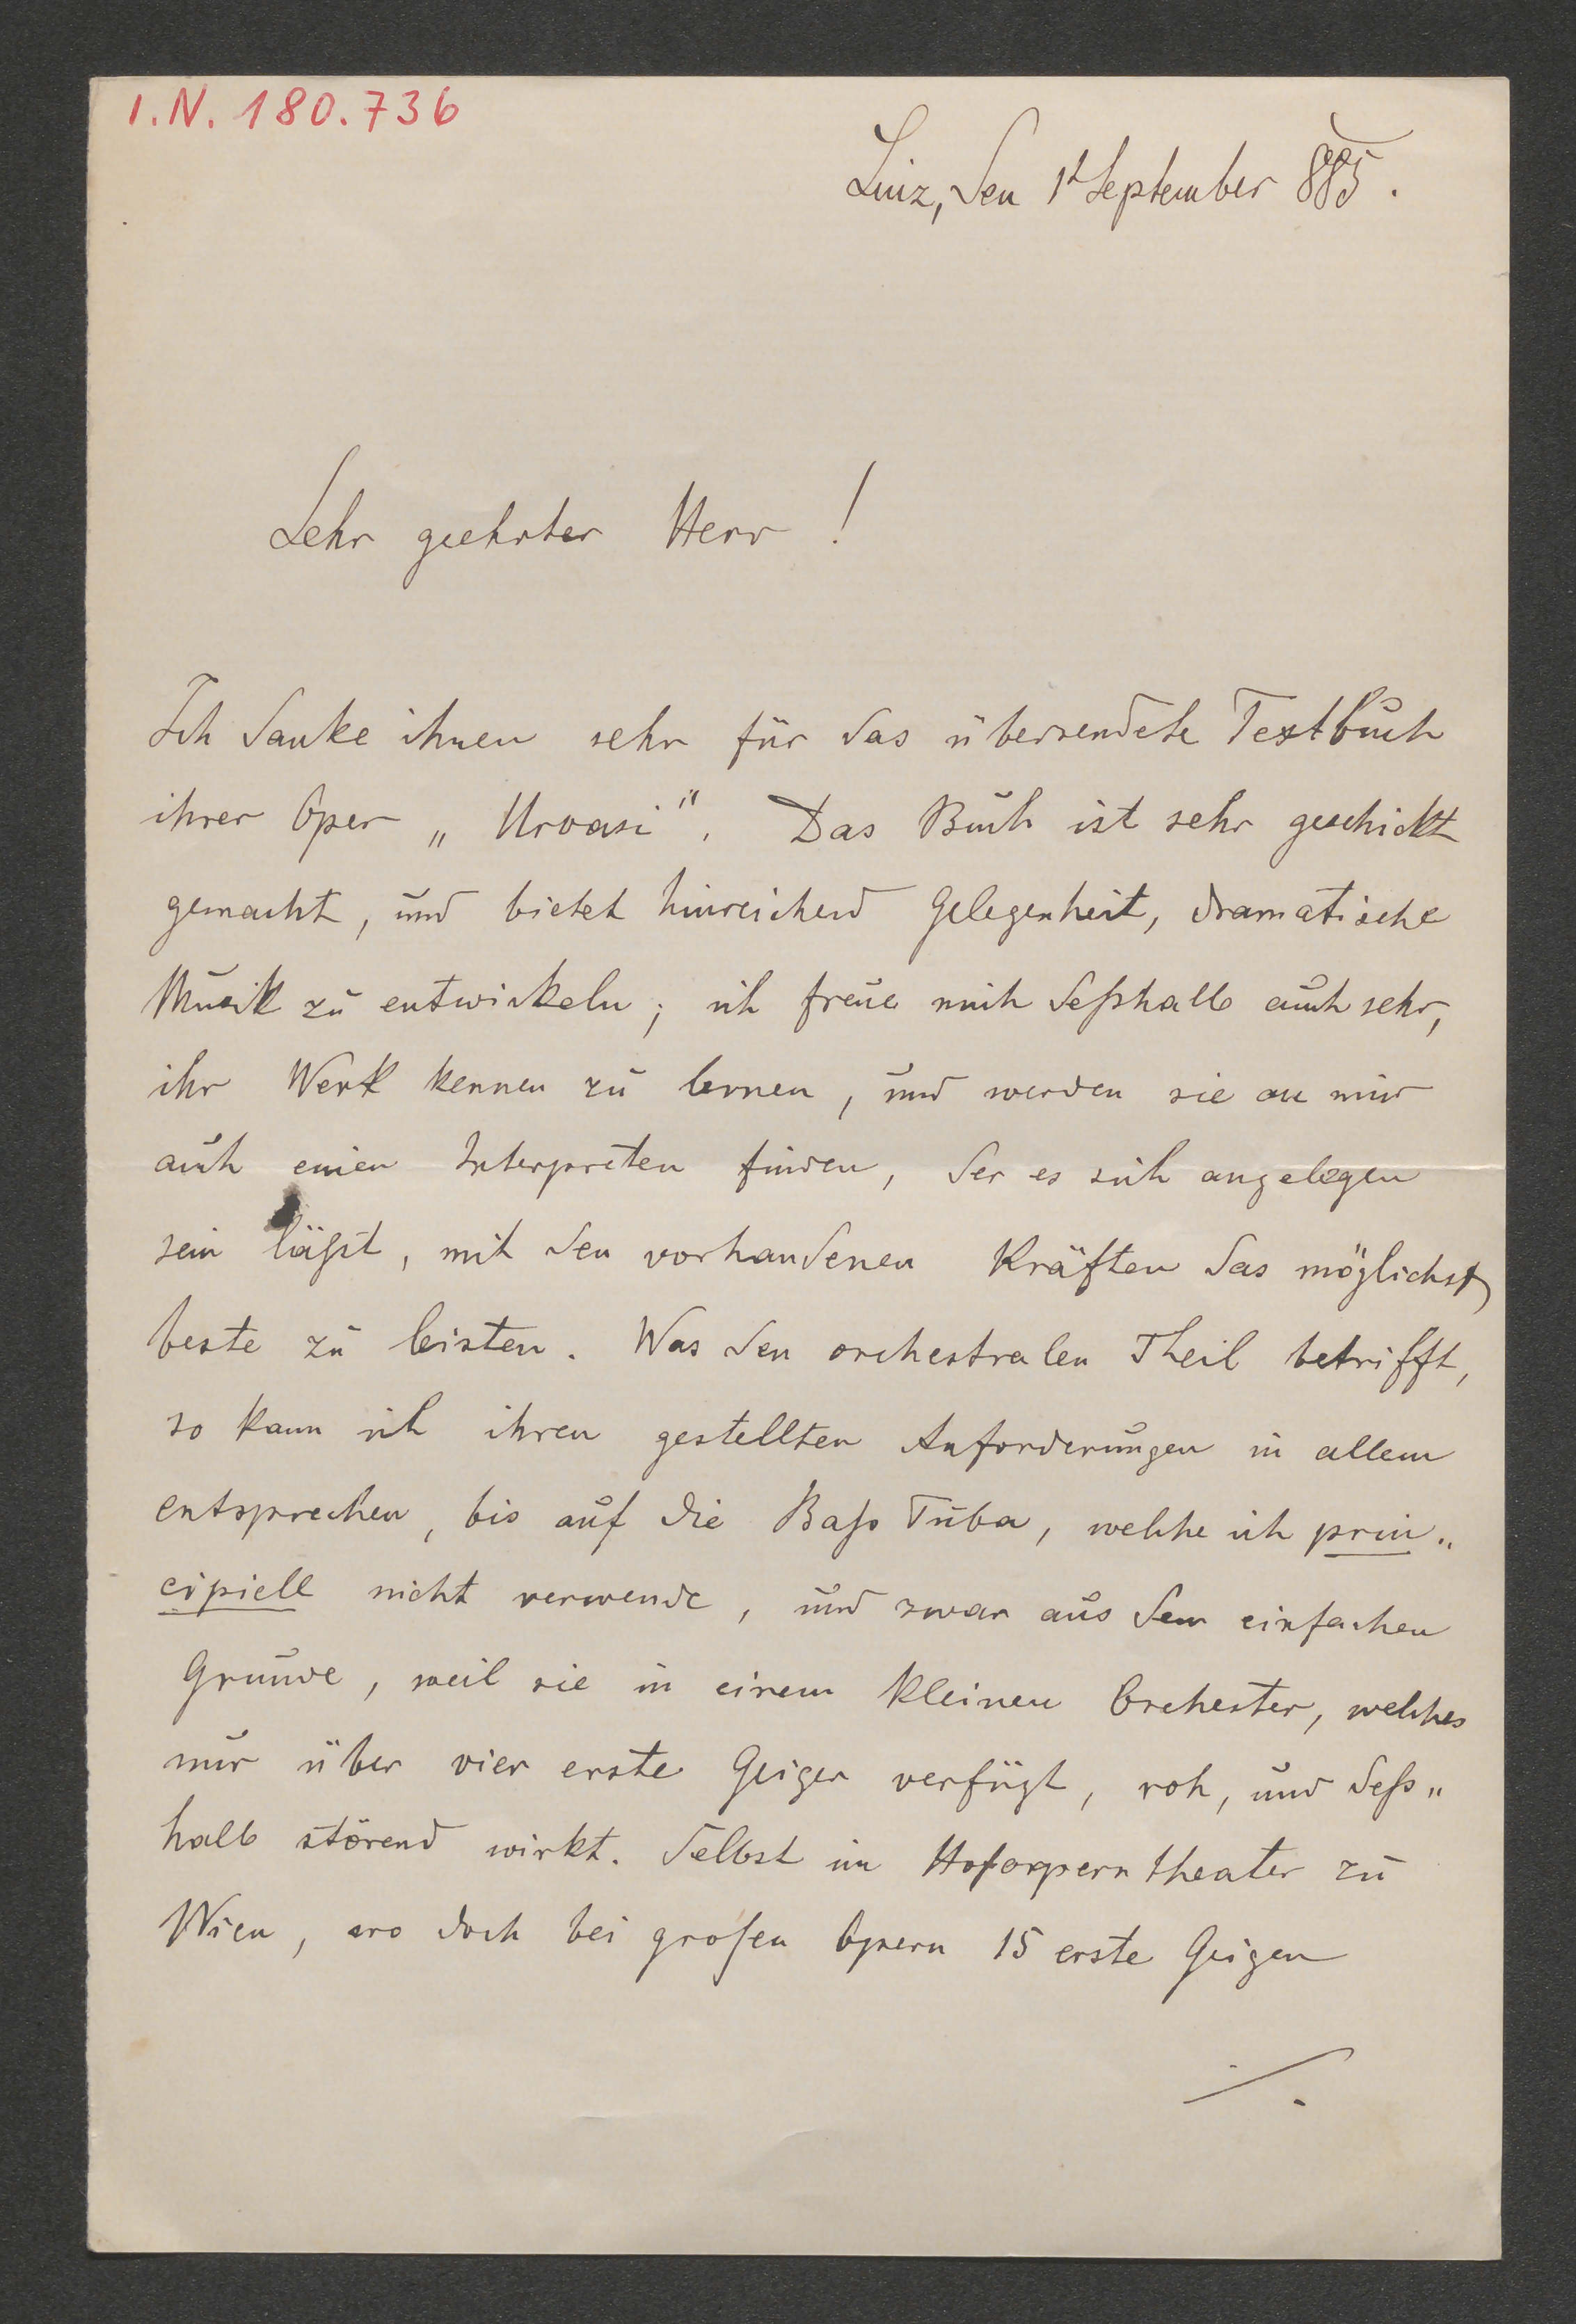 I.N. 180.736
Linz, den 1t September 885.
Sehr geehrter Herr !
Ich danke ihnen sehr für das übersendete Textbuch
ihrer Oper „ Urvasi ". Das Buch ist sehr geschickt
gemacht, und bietet hinreichend Gelegenheit, dramatische
Musik zu entwickeln; ich freue mich deßhalb auch sehr,
ihr Werk kennen zu lernen, und werden sie an mir
auch einen Interpreten finden, der es sich angelegen
sein läßt, mit den vorhandenen Kräften das möglichst
beste zu leisten. Was den orchestralen Theil betrifft,
so kann ich ihren gestellten Anforderungen in allem
entsprechen, bis auf die Baß Tuba, welche ich prin„
cipiell nicht verwende, und zwar aus dem einfachen
Grunde, weil sie in einem kleinen Orchester, welches
nur über vier erste Geiger verfügt, roh, und deß„
halb störend wirkt. Selbst im Hofoperntheater zu
Wien, wo doch bei großen Opern 15 erste Geigen
./.